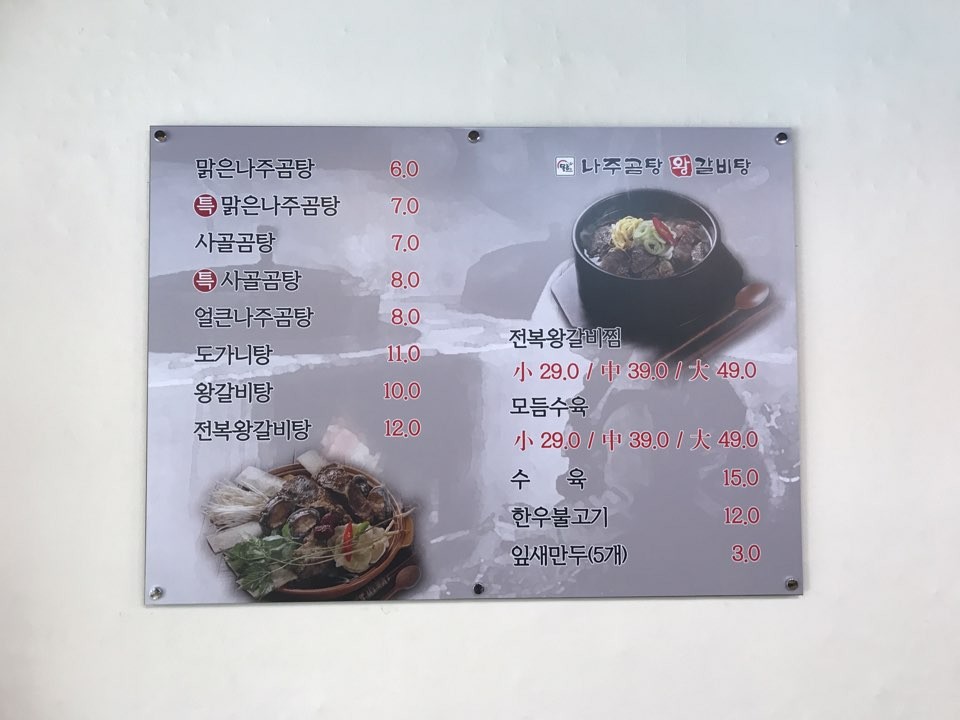 맑은나주곰탕 6.0
특 맑은나주곰탕 7.0
사골곰탕 7.0
특 사골곰탕 8.0
얼큰나주곰탕 8.0
도가니탕 11.0
왕갈비탕 10.0
전복왕갈비탕 12.0
나주곰탕 왕갈비탕
전복왕갈비찜
小 29.0 / 中 39.0 / 大 49.0
모듬수육
小 29.0 / 中 39.0 / 大 49.0
수 육 15.0
한우불고기 12.0
잎새만두(5개) 3.0